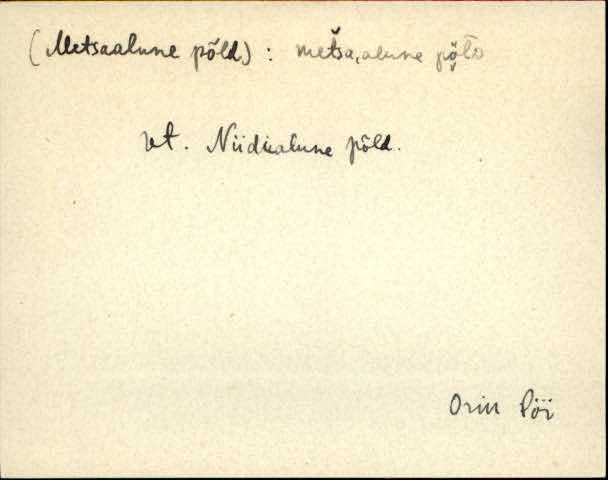 (Metsaalune põld) : metsa,alune
vt. Niidualune põld.
Pöi